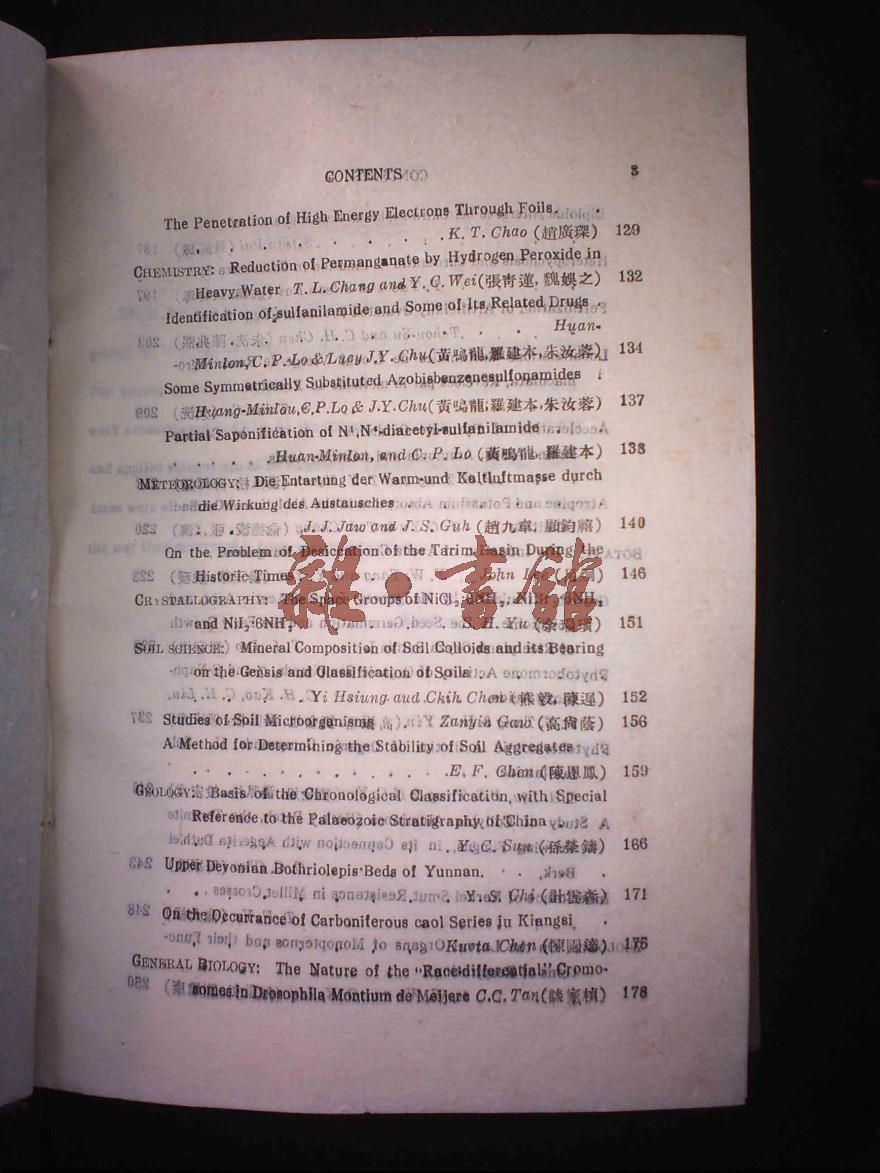 CONTENTS 3
The Penetration of High Energy Electrons Through Foils. .
K. T. Chao (趙廣琛) 129
CHEMISTRY: Reduction of Permanganate by Hydrogen Peroxide in
Heavy Water T. L. Chang and Y. C. Wei (張青蓮, 魏娛之) 132
Identification of sulfanilamide and Some of Its Related Drugs .
Huan-
Minlon, C. P. Lo & Lucy J.Y. Chu (黃鳴龍, 羅建本, 朱汝蓉) 134
Some Symmetrically Substituted Azobisbenzenesulfonamides
Huang-Minlou, C.P.Lo & J.Y.Chu (黃鳴龍, 羅建本, 朱汝蓉) 137
Partial Saponification of N¹,N⁴-diacetyl-sulfanilamide . .
Huan-Minlon, and C. P. Lo (黃鳴龍, 羅建本) 138
METEOROLOGY: Die Entartung der Warm-und Kaltluftmasse durch
die Wirkung des Austausches .
J. J. Jaw and J. S. Guh (趙九章, 顧鈞禧) 140
On the Problem of Desiccation of the Tarim Basin During the
Historic Times John Lee 146
CRYSTALLOGRAPHY: The Space Groups of NiCl₂·6NH₃, NiBr₂·6NH₃
and NiI₂·6NH₃ S. H. Yu 151
SOIL SCIENCE: Mineral Composition of Soil Colloids and its Bearing
on the Gensis and Classification of Soils
Yi Hsiung aud Chih Chen (熊毅, 陳遲) 152
Studies of Soil Microorganisms Zanyin Gaw (高尚蔭) 156
A Method for Determining the Stability of Soil Aggregates
E. F. Chen (陳恩鳳) 159
GEOLOGY: Basis of the Chronological Classification, with Special
Reference to the Palaeozoic Stratigraphy of China
Y. C. Sun (孫雲鑄) 166
Upper Devonian Bothriolepis Beds of Yunnan.
Y. S. Chi (計榮森) 171
On the Occurrance of Carboniferous caol Series iu Kiangsi .
Kuota Chen (陳國達) 175
GENERAL BIOLOGY: The Nature of the "Race-differential" Cromo-
somes in Drosophila Montium de Meijere C.C. Tan (談家楨) 178
雜·書館